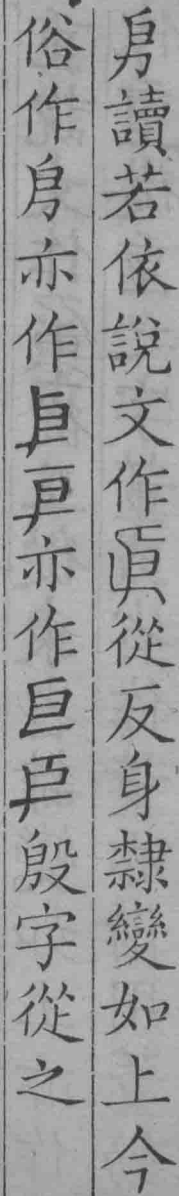 㐆讀若依說文作㐆從反身隸變如上今
俗作㐆亦作亦作殷字從之